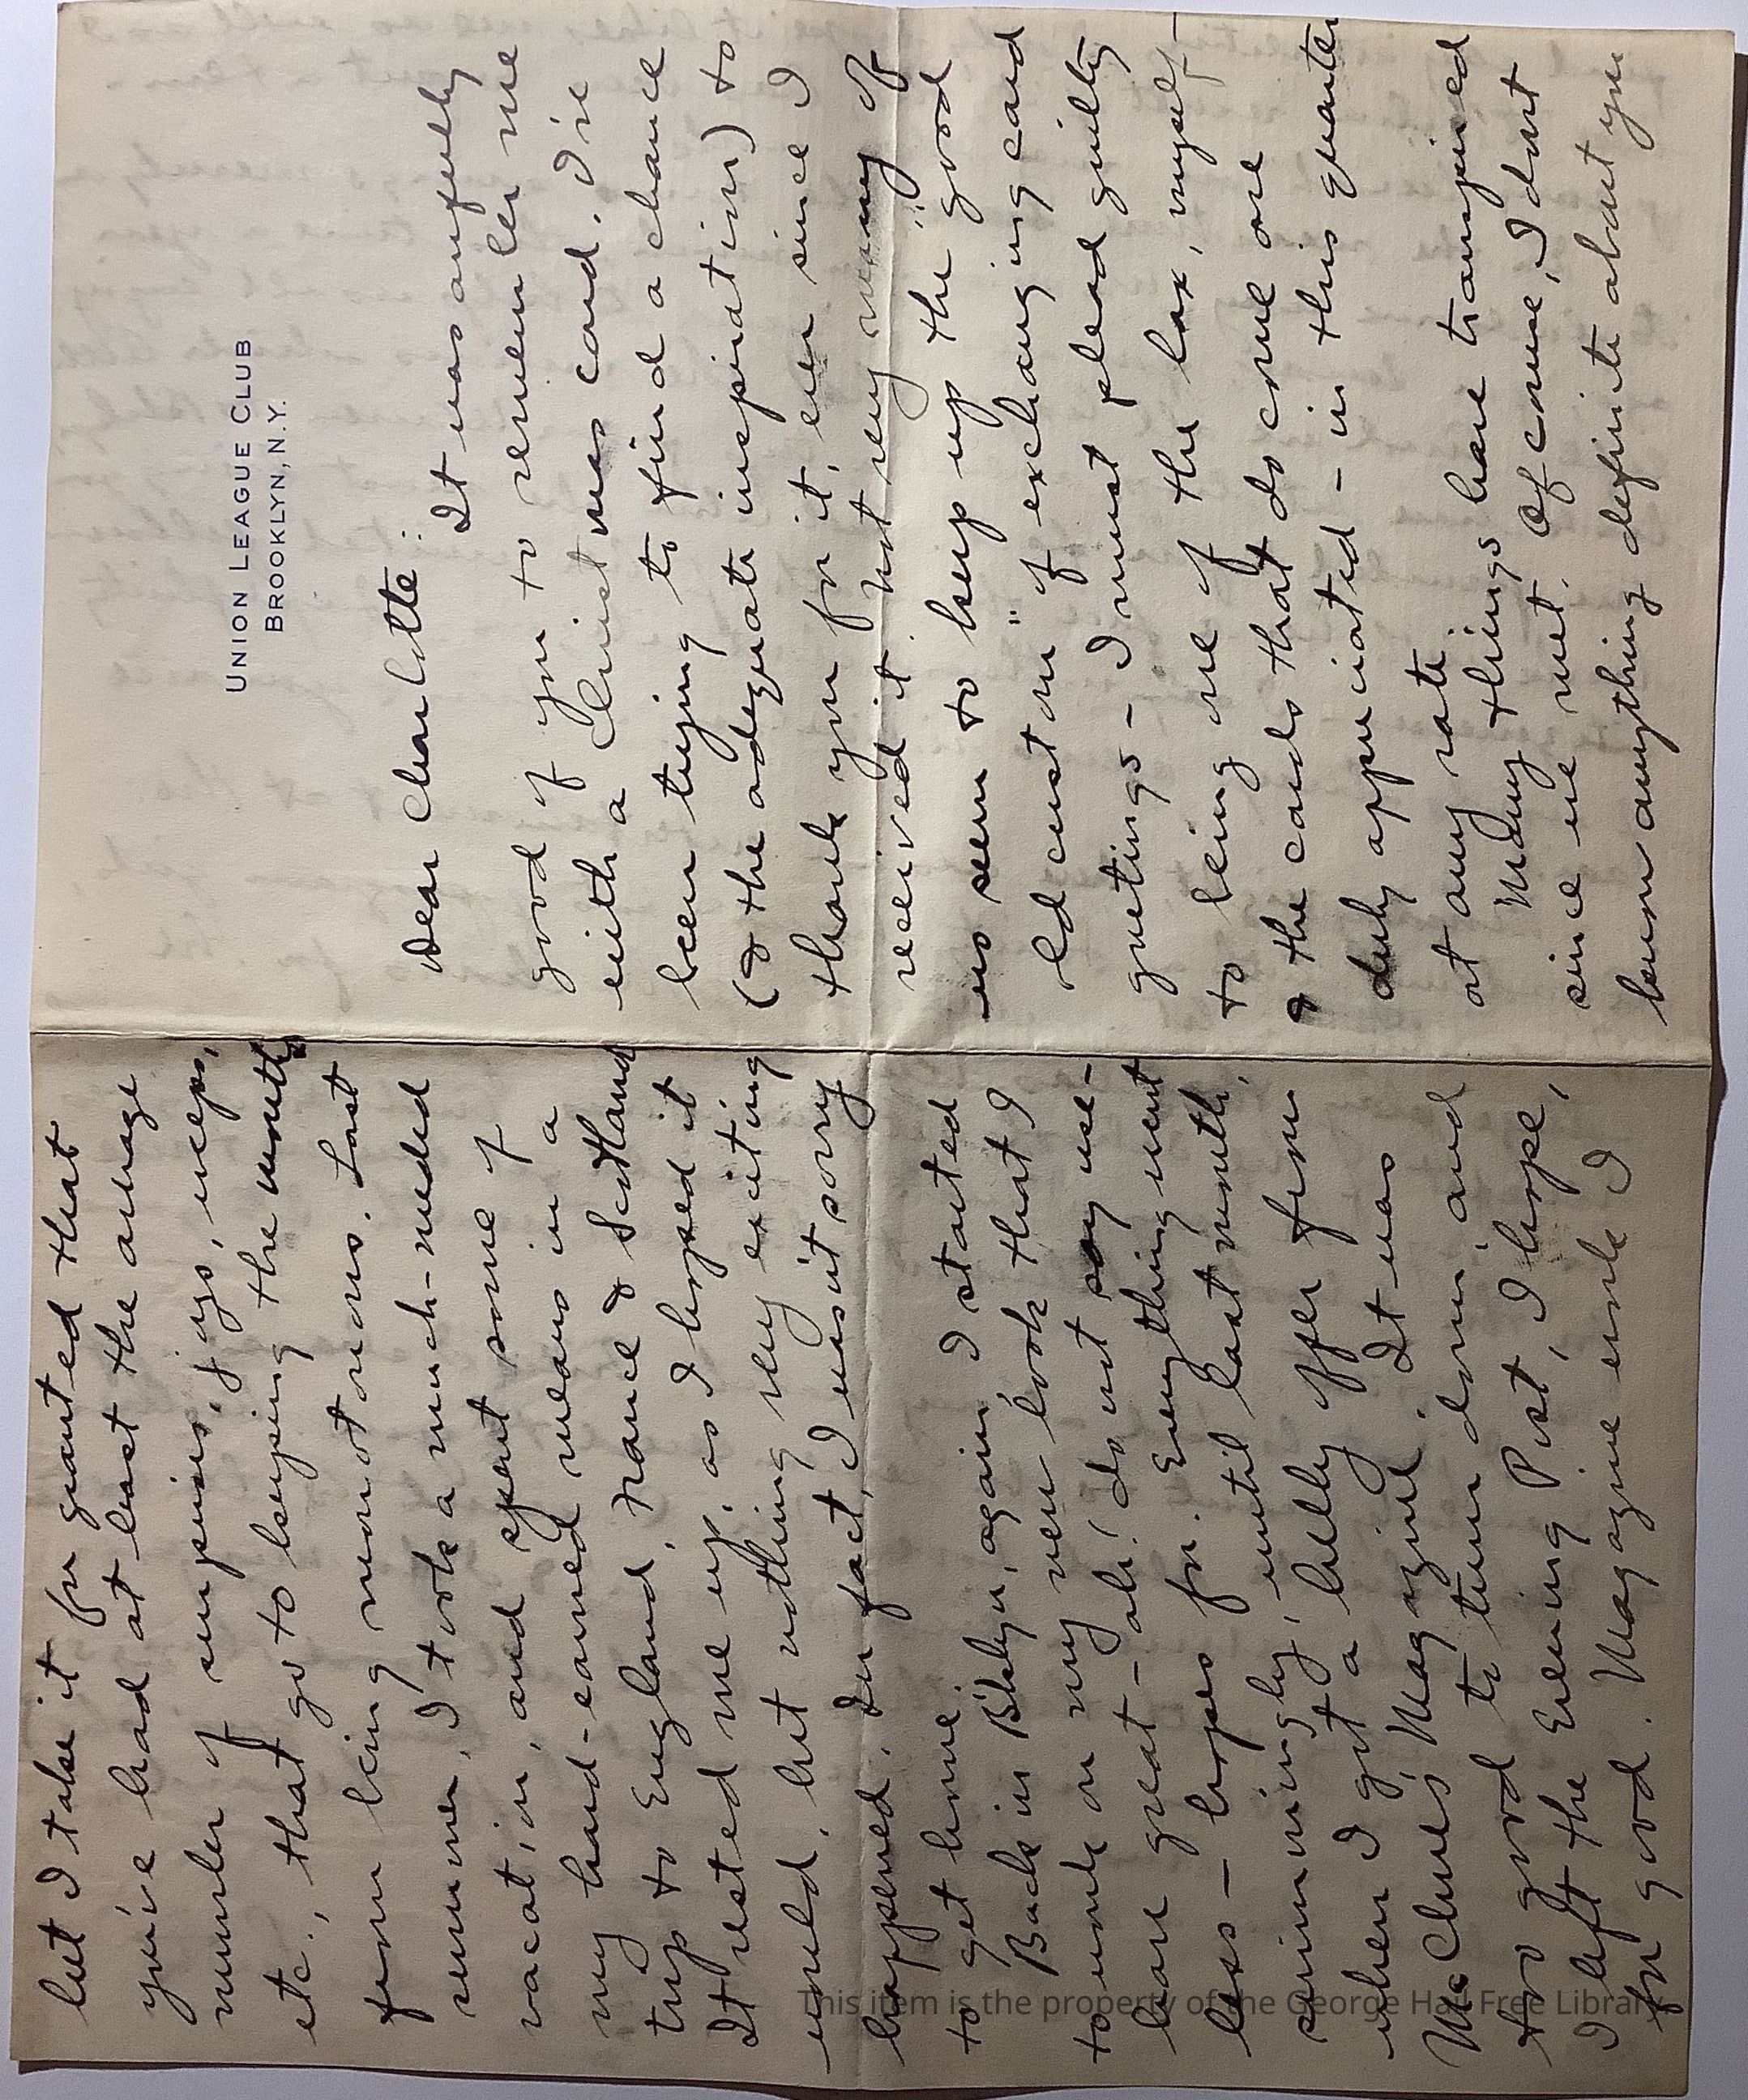 UNION LEAGUE CLUB
BROOKLYN, N.Y.
Dear Charlotte:
It was awfully
good of you to remember me
with a Christmas card. I've
been trying to find a chance
(& the adequate inspiration) to
thank you for it, ever since I
received it. Not very many of
us seem to keep up the "good
old custom" of exchanging card
greetings – I must plead guilty
to being one of the lax, myself –
& the cards that do come are
duly appreciated – in this quarter
at any rate.
Many things have transpired
since we met. Of course, I don't
know anything definite about you
but I take it for granted that
you've had at least the average
number of surprises, joys, weeps,
etc., that go to keeping the months
from being monotonous. Last
summer, I took a much-needed
vacation, and spent some of
my hard-earned means in a
trip to England, France & Scotland
It rested me up, as I hoped it
would, but nothing very exciting
happened. In fact, I wasn't sorry
to get home.
Back in B'klyn, again I started
to work on my new book that I
have great – oh! do not say use-
less – hopes for. Everything went
swimmingly, until last month,
when I got a bully offer from
McClure's Magazine. It was
too good to turn down, and
I left the Evening Post, I hope,
for good. Magazine work I
This item is the property of the George Hail Free Library